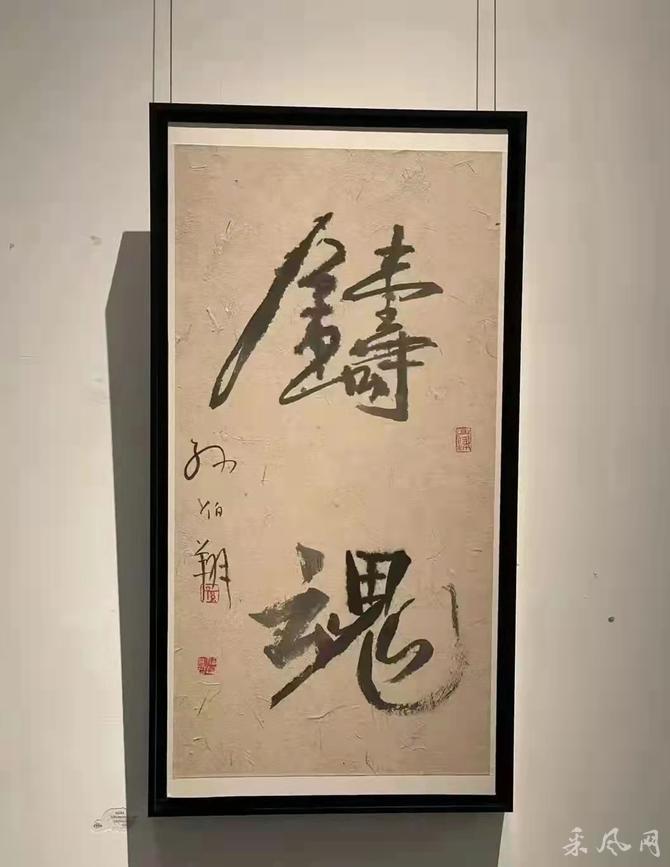 鑄魂
孙伯翔
采风网